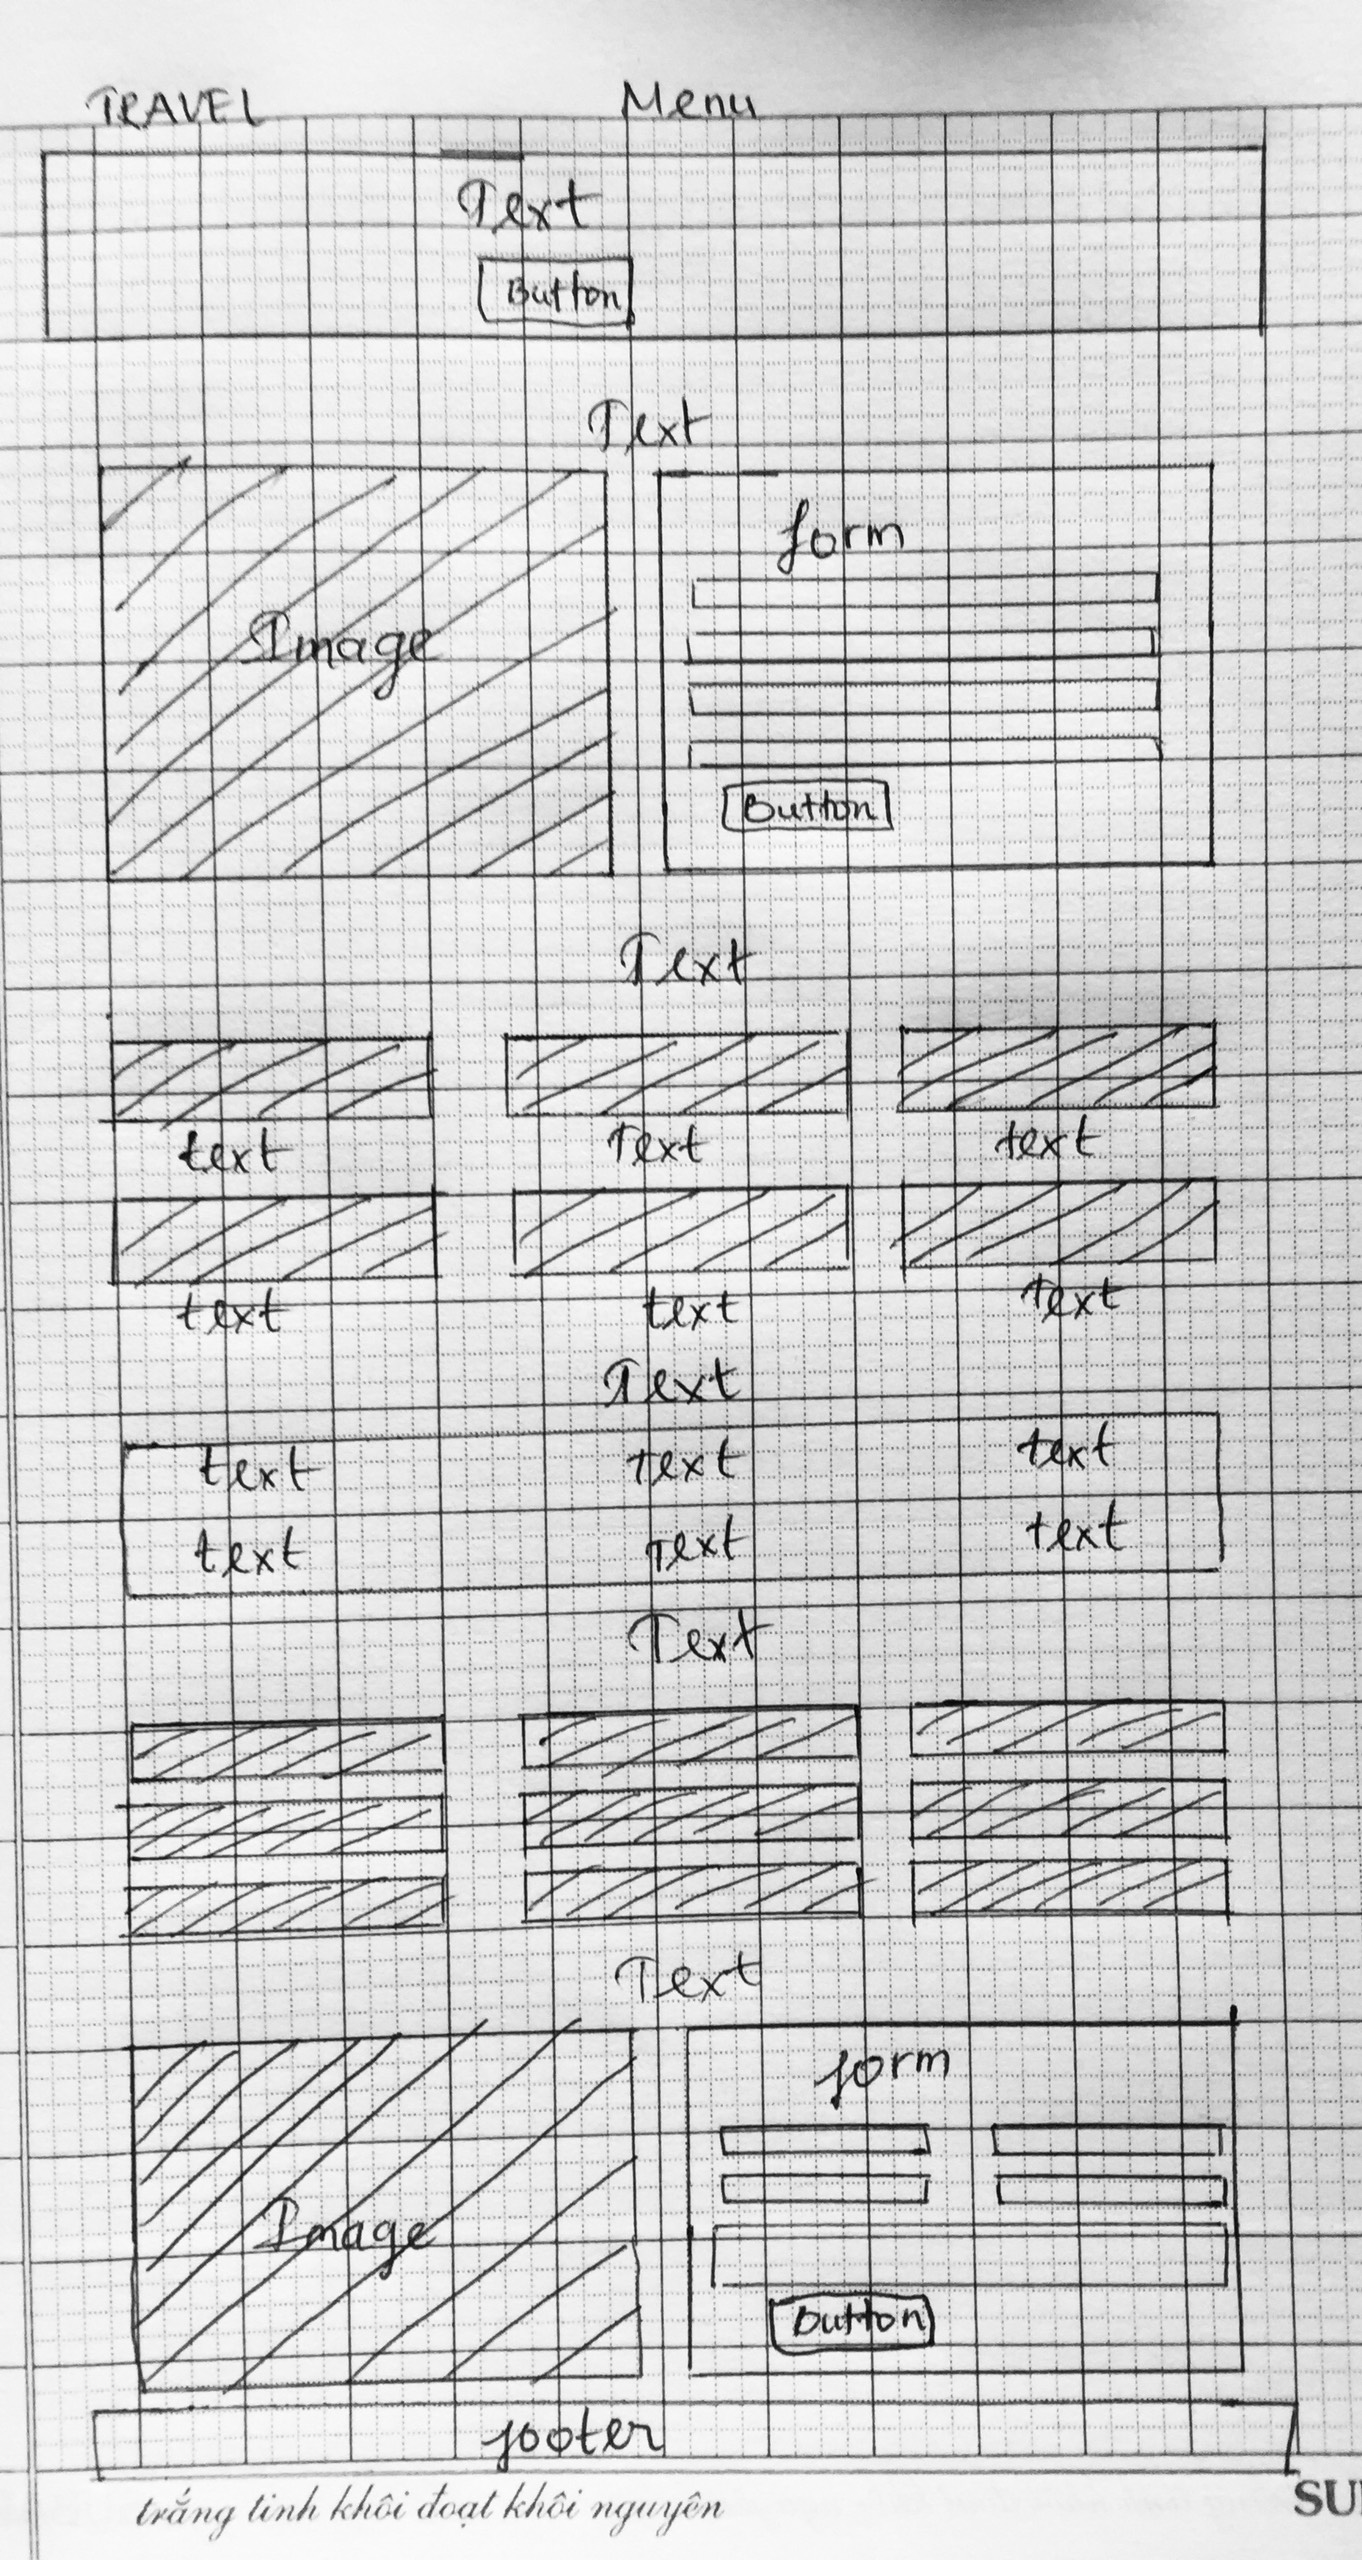 TRAVEL Menu
Text
Button
Text
Image
form
Button
Text
text Text text
text text Text
Text
text text text
text Text text
Text
Text
Image
form
Button
footer
trắng tinh khôi đoạt khôi nguyên
SU